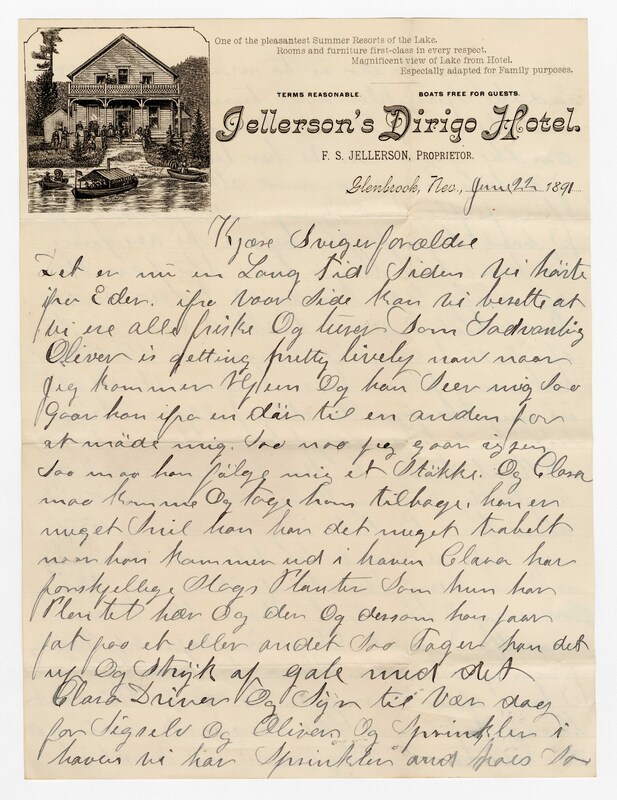 One of the pleasantest Summer Resorts of the Lake.
Rooms and furniture first-class in every respect.
Magnificent view of Lake from Hotel.
Especially adapted for Family purposes.
TERMS REASONABLE. BOATS FREE FOR GUESTS.
Jellerson's Dirigo Hotel.
F. S. JELLERSON, PROPRIETOR.
Glenbrook, Nev., June 22 1891
Kjære Svigerforældre
Det er nu en Lang tid Siden vi hörte
ifra Eder. ifra voor Side kan vi berette at
vi ere alle friske Og turer Som Sadvanlig
Oliver is getting pretty lively now naar
Jeg kommer Hjem Og han Seer mig Soo
Gaar han ifra en dör til en anden for
at möde mig. Soo noo jeg gaar igjen
Soo maa han fölge mig et Stökke. Og Clara
maa komme Og tage ham tilbage, han er
meget Snil han har det meget trabelt
naar han kommer ud i haven Clara har
forskjellige Slags Planter Som hun har
Plantet hær Og der Og dersom han faar
fat paa et eller andet Soo Tager han det
up Og Stryk af gale med det
Clara Driver Og Syr til Vær dag
for Sigselv Og Oliver Og Sprinkler i
haven vi har Sprinkler and hoes Soo